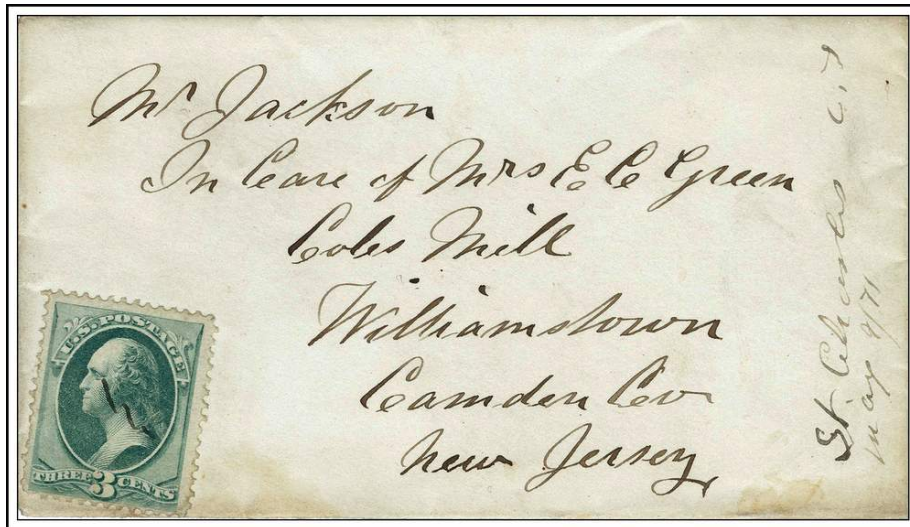 Mr Jackson
In Care of Mrs E C Green
Coles Mill
Williamstown
Camden Co
New Jersey
St Charles
May 9/71
U.S. POSTAGE
THREE 3 CENTS